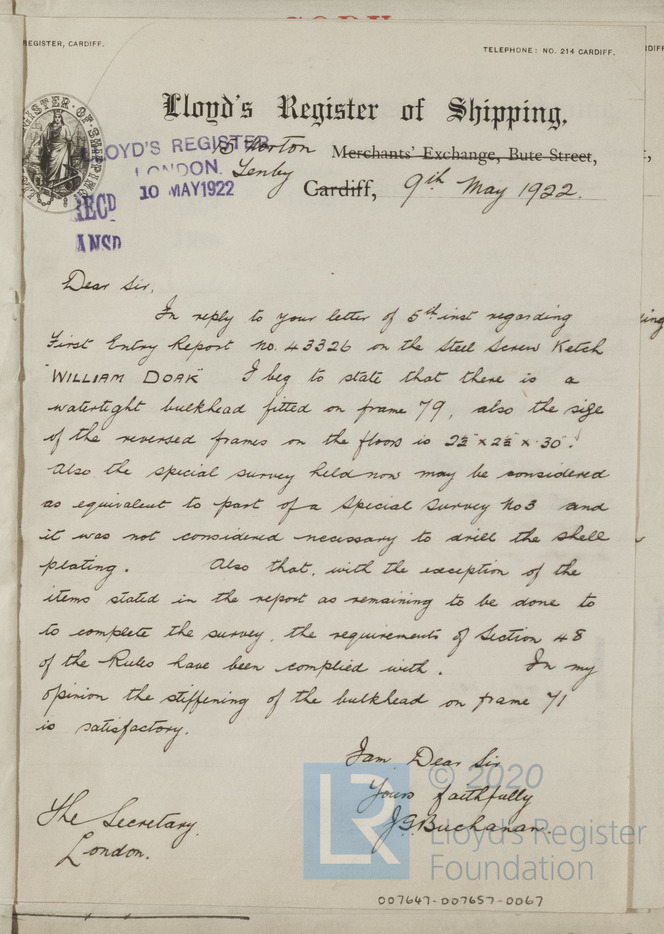 COPY
REGISTER, CARDIFF.
TELEPHONE: NO. 214 CARDIFF.
Lloyd's Register of Shipping,
LLOYD'S REGISTER
LONDON.
10 MAY 1922
RECD
ANSD
Norton
Tenby
Merchants' Exchange, Bute Street,
Cardiff, 9th May 1922.
Dear Sir,
In reply to your letter of 5th inst regarding
First Entry Report No. 43326 on the Steel Screw Ketch
"WILLIAM DOAK" I beg to state that there is a
watertight bulkhead fitted on frame 79, also the size
of the reversed frames on the floors is 2½" x 2½" x .30".
Also the special survey held now may be considered
as equivalent to part of a Special Survey No 3 and
it was not considered necessary to drill the shell
plating. Also that, with the exception of the
items stated in the report as remaining to be done to
to complete the survey, the requirements of Section 48
of the Rules have been complied with. In my
opinion the stiffening of the bulkhead on frame 71
is satisfactory.
I am Dear Sir
Yours faithfully
J G Buchanan.
The Secretary,
London.
© 2020
LR
Lloyd's Register
Foundation
007647-007657-0067